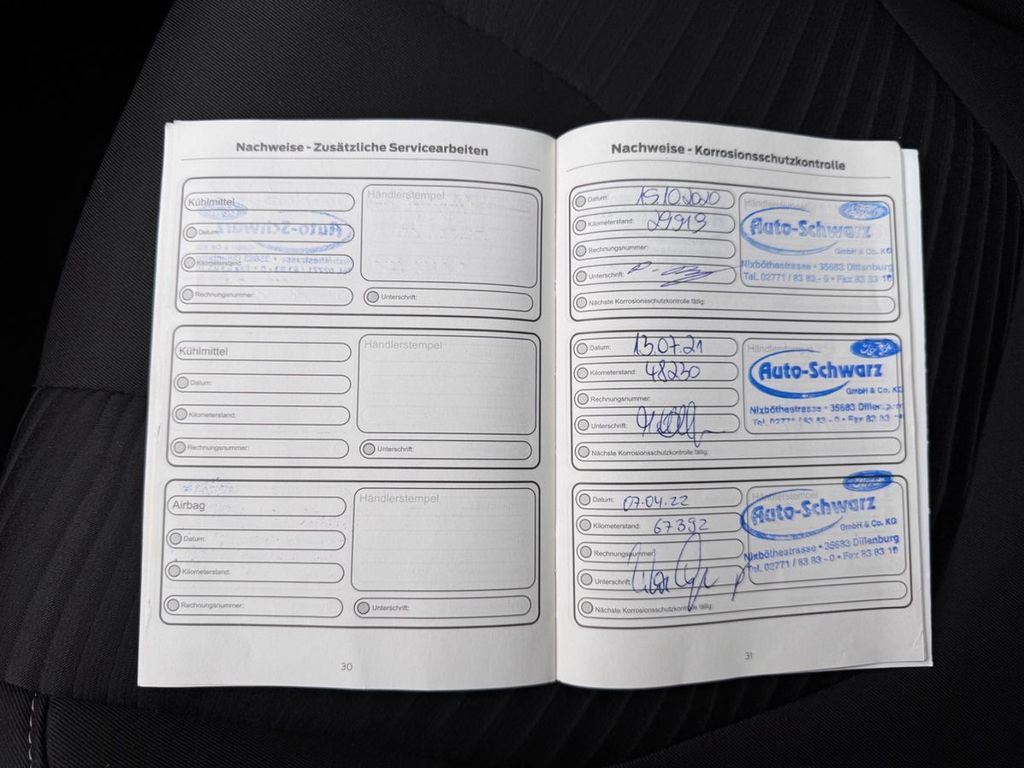 Nachweise - Zusätzliche Servicearbeiten
Kühlmittel
Händlerstempel
Datum:
Kilometerstand:
Rechnungsnummer:
Unterschrift:
Kühlmittel
Händlerstempel
Datum:
Kilometerstand:
Rechnungsnummer:
Unterschrift:
Airbag
Händlerstempel
Datum:
Kilometerstand:
Rechnungsnummer:
Unterschrift:
30
Nachweise - Korrosionsschutzkontrolle
Datum: 15.10.2020
Kilometerstand: 29919
Rechnungsnummer:
Unterschrift:
Nächste Korrosionsschutzkontrolle fällig:
Händlerstempel
Ford
Auto-Schwarz
GmbH & Co. KG
Nixböthestrasse • 35683 Dillenburg
Tel. 02771 / 83 83 - 0 • Fax 83 83 10
Datum: 13.07.21
Kilometerstand: 48230
Rechnungsnummer:
Unterschrift:
Nächste Korrosionsschutzkontrolle fällig:
Händlerstempel
Ford
Auto-Schwarz
GmbH & Co. KG
Nixböthestrasse • 35683 Dillenburg
Tel. 02771 / 83 83 - 0 • Fax 83 83 10
Datum: 07.04.22
Kilometerstand: 67392
Rechnungsnummer:
Unterschrift:
Nächste Korrosionsschutzkontrolle fällig:
Händlerstempel
Ford
Auto-Schwarz
GmbH & Co. KG
Nixböthestrasse • 35683 Dillenburg
Tel. 02771 / 83 83 - 0 • Fax 83 83 10
31